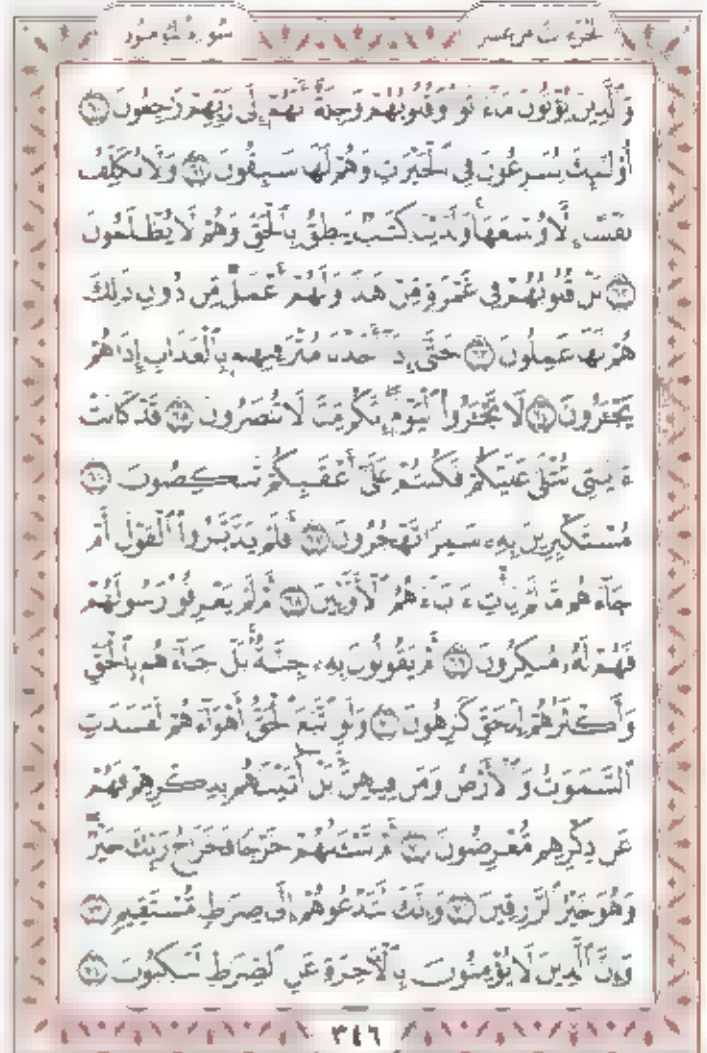 سورة المؤمنون الجزء الثامن عشر
وَٱلَّذِينَ يُؤْتُونَ مَآ ءَاتَوا۟ وَّقُلُوبُهُمْ وَجِلَةٌ أَنَّهُمْ إِلَىٰ رَبِّهِمْ رَٰجِعُونَ ٦٠
أُو۟لَٰٓئِكَ يُسَٰرِعُونَ فِى ٱلْخَيْرَٰتِ وَهُمْ لَهَا سَٰبِقُونَ ٦١ وَلَا نُكَلِّفُ
نَفْسًا إِلَّا وُسْعَهَا وَلَدَيْنَا كِتَٰبٌ يَنطِقُ بِٱلْحَقِّ وَهُمْ لَا يُظْلَمُونَ
٦٢ بَلْ قُلُوبُهُمْ فِى غَمْرَةٍ مِّنْ هَٰذَا وَلَهُمْ أَعْمَٰلٌ مِّن دُونِ ذَٰلِكَ
هُمْ لَهَا عَٰمِلُونَ ٦٣ حَتَّىٰٓ إِذَآ أَخَذْنَا مُتْرَفِيهِم بِٱلْعَذَابِ إِذَا هُمْ
يَجْـَٔرُونَ ٦٤ لَا تَجْـَٔرُوا۟ ٱلْيَوْمَ إِنَّكُم مِّنَّا لَا تُنصَرُونَ ٦٥ قَدْ كَانَتْ
ءَايَٰتِى تُتْلَىٰ عَلَيْكُمْ فَكُنتُمْ عَلَىٰٓ أَعْقَٰبِكُمْ تَنكِصُونَ ٦٦
مُسْتَكْبِرِينَ بِهِۦ سَٰمِرًا تَهْجُرُونَ ٦٧ أَفَلَمْ يَدَّبَّرُوا۟ ٱلْقَوْلَ أَمْ
جَآءَهُم مَّا لَمْ يَأْتِ ءَابَآءَهُمُ ٱلْأَوَّلِينَ ٦٨ أَمْ لَمْ يَعْرِفُوا۟ رَسُولَهُمْ
فَهُمْ لَهُۥ مُنكِرُونَ ٦٩ أَمْ يَقُولُونَ بِهِۦ جِنَّةٌۢ بَلْ جَآءَهُم بِٱلْحَقِّ
وَأَكْثَرُهُمْ لِلْحَقِّ كَٰرِهُونَ ٧٠ وَلَوِ ٱتَّبَعَ ٱلْحَقُّ أَهْوَآءَهُمْ لَفَسَدَتِ
ٱلسَّمَٰوَٰتُ وَٱلْأَرْضُ وَمَن فِيهِنَّ بَلْ أَتَيْنَٰهُم بِذِكْرِهِمْ فَهُمْ
عَن ذِكْرِهِم مُّعْرِضُونَ ٧١ أَمْ تَسْـَٔلُهُمْ خَرْجًا فَخَرَاجُ رَبِّكَ خَيْرٌ
وَهُوَ خَيْرُ ٱلرَّٰزِقِينَ ٧٢ وَإِنَّكَ لَتَدْعُوهُمْ إِلَىٰ صِرَٰطٍ مُّسْتَقِيمٍ ٧٣
وَإِنَّ ٱلَّذِينَ لَا يُؤْمِنُونَ بِٱلْـَٔاخِرَةِ عَنِ ٱلصِّرَٰطِ لَنَٰكِبُونَ ٧٤
٣٤٦